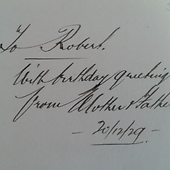 To Robert.
With birthday greeting
from Mother & Fathe
- 20/12/29. -